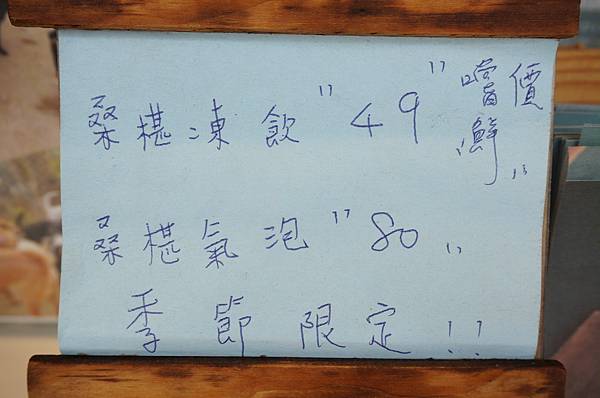 桑椹凍飲"49"嚐鮮價"
桑椹氣泡"80"
季節限定!!